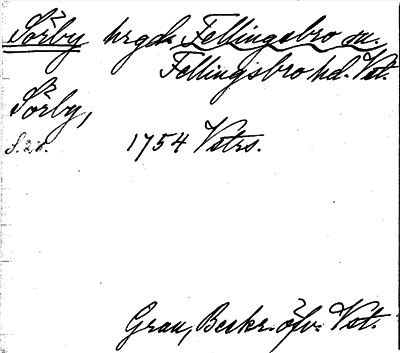 Sörby hrgd. Fellingsbro sn.
Fellingsbro hd. Vst.
Sörby,
1754 Vstrs.
Grau, Beskr. öfv. Vst.